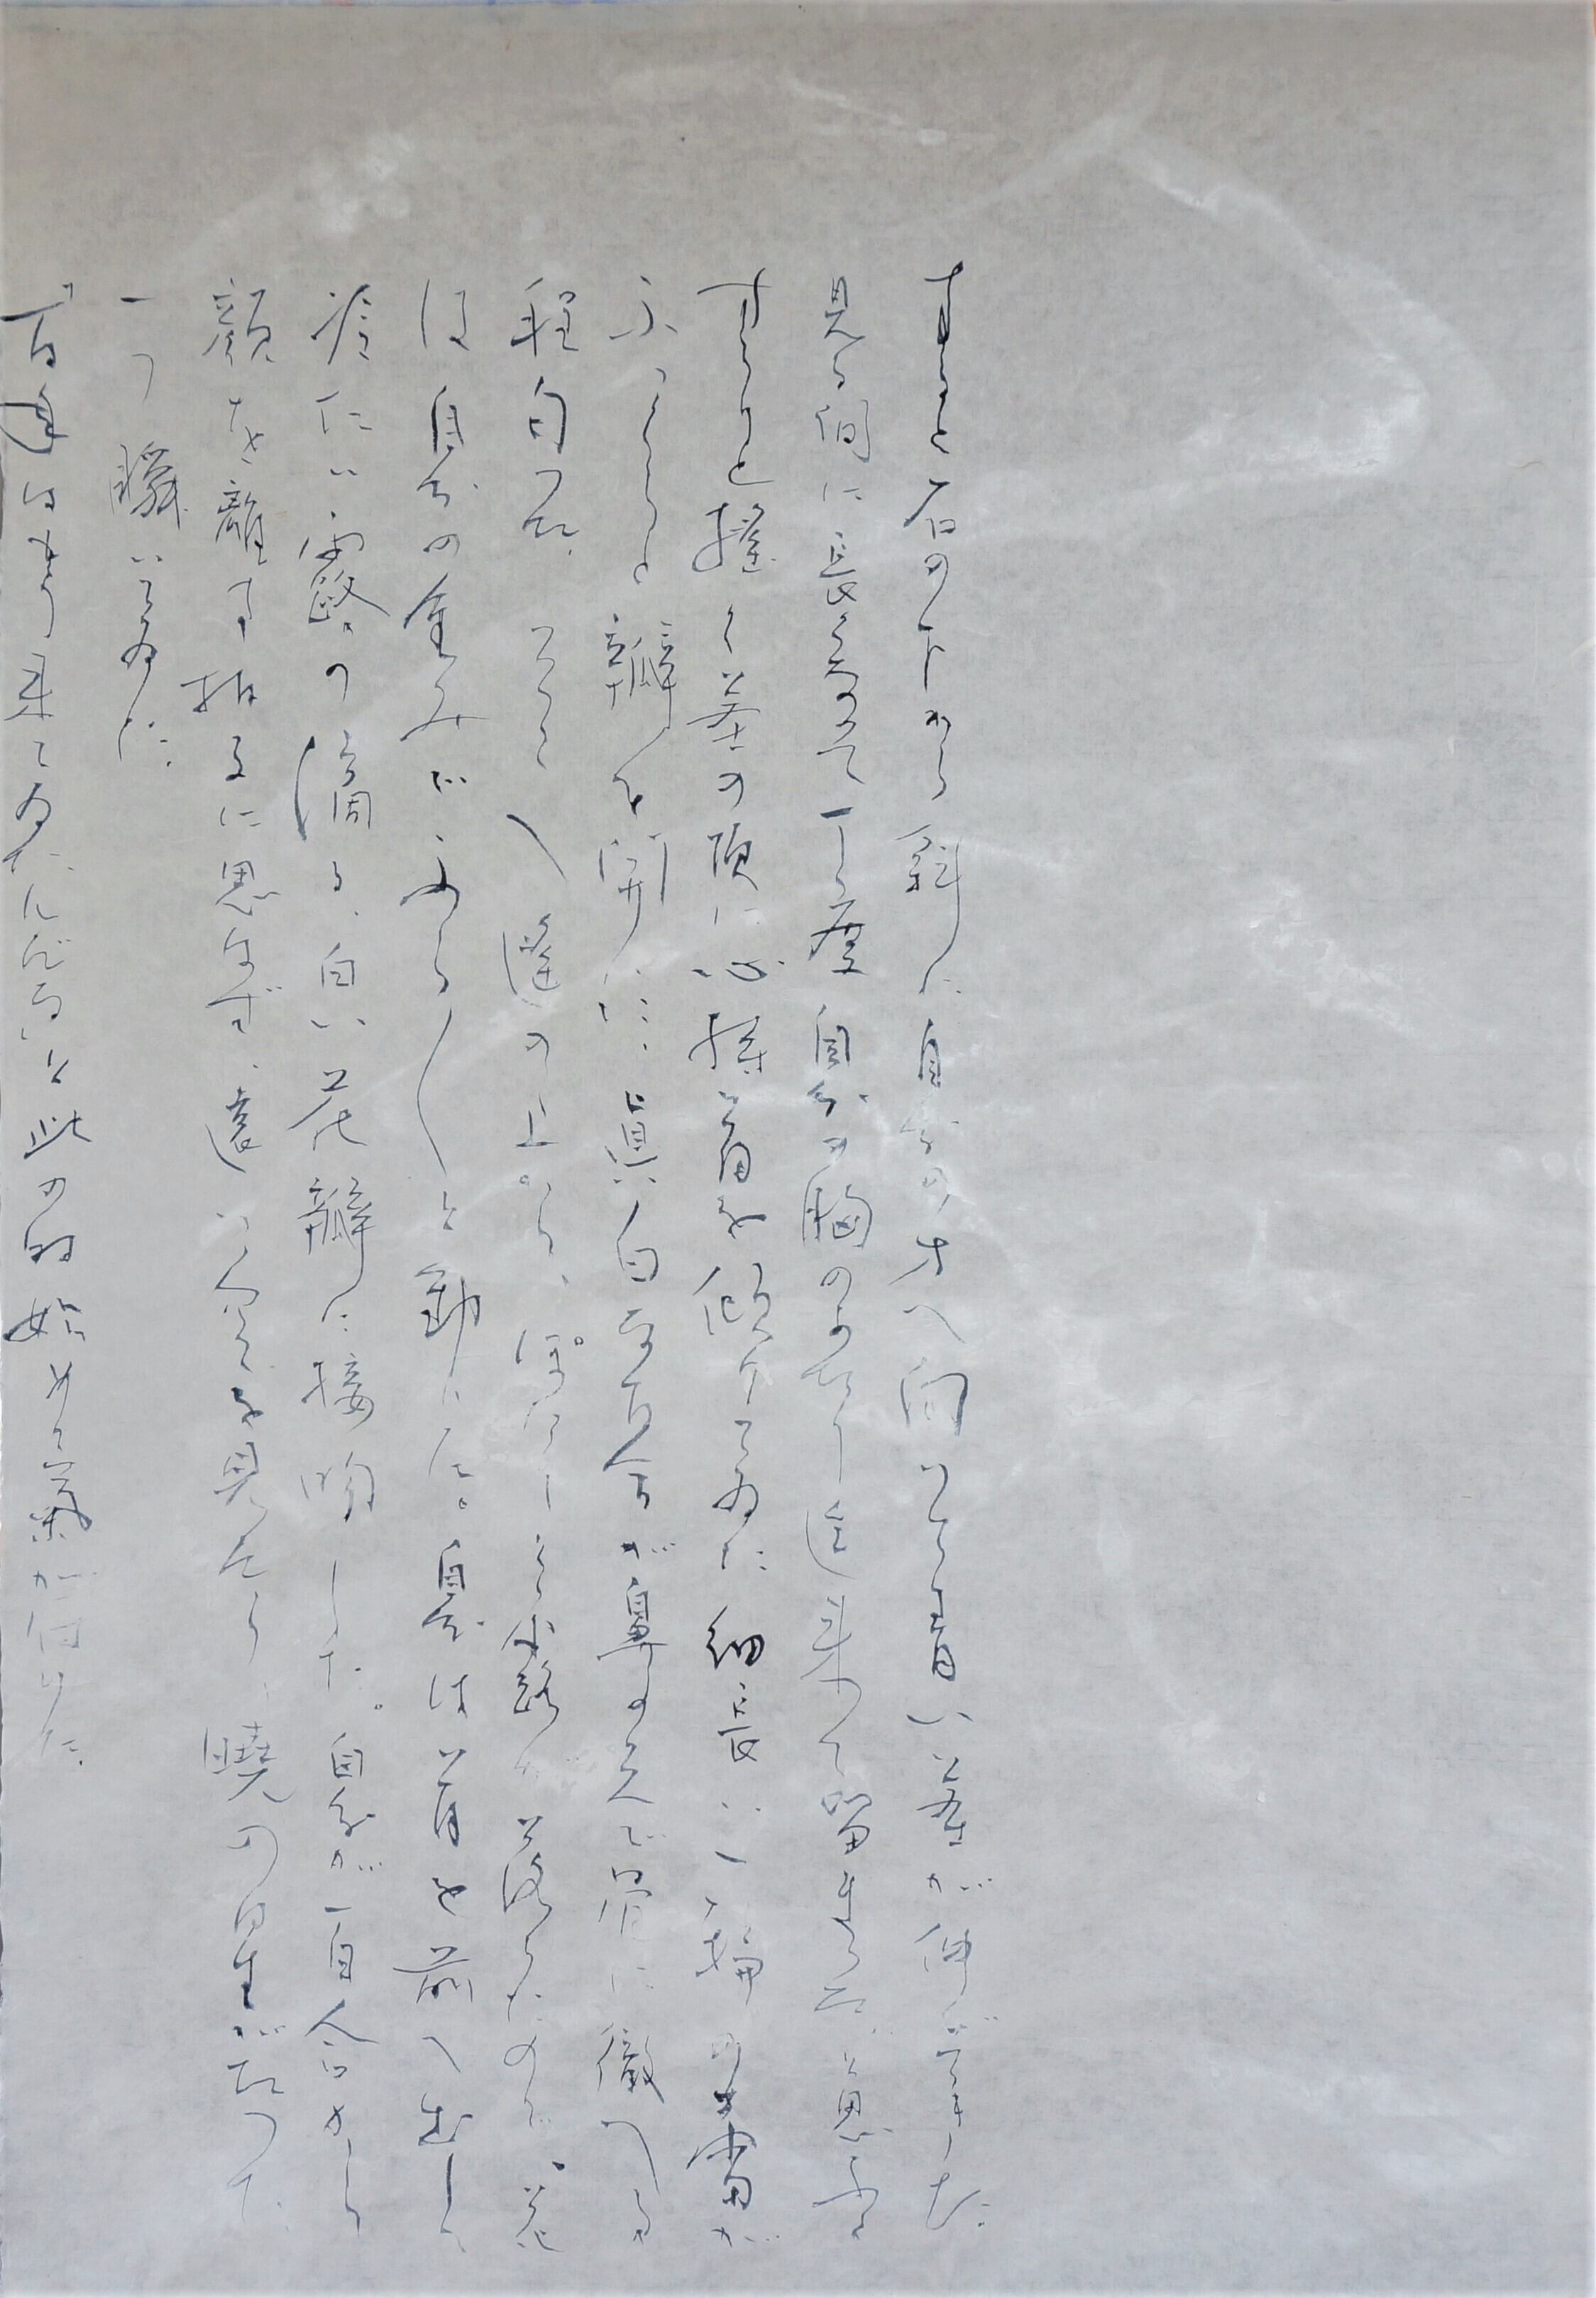 すると石の下から斜に自分の方へ向いて青い茎が伸びて来た
見る間に長くなつて丁度自分の胸のあたり迄来て留まつた、と思ふと
すらりと揺く茎の頂に心持首を傾けてゐた細長い一輪の蕾が
ふつくらと瓣を開いた、眞白な百合が鼻の先で骨に徹へる
程匂つた、そこへ遥の上から、ぽたりと露が落ちたので、花
は自分の重みでふら〱と動いた。自分は首を前へ出して
冷たい露の滴る、白い花瓣に接吻した。自分が百合から
顔を離す拍子に思はず、遠い空を見たら、曉の星がたつた
一つ瞬いてゐた。
「百年はもう来てゐたんだな」と此の時始めて氣が付いた。